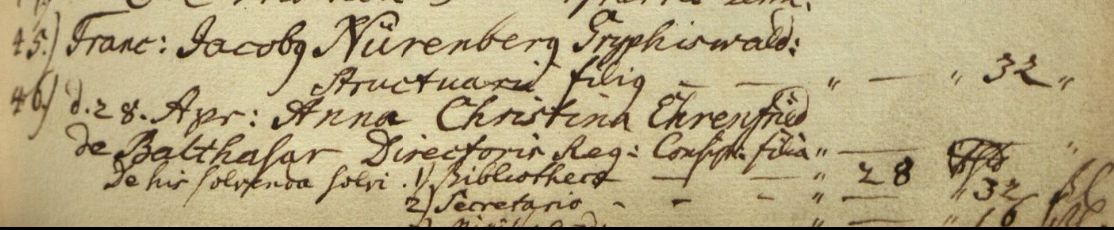 45.) Franc: Jacobq Nürenberg Gryphiswald:
Structuarii filiq — — „ — „ 32 „
46.) d. 28. Apr: Anna Christina Ehrenfried
de Balthasar Directoris Reg: Consist: filia „ — „
De his solvenda solvi. 1) Bibliothecæ — — „ 28 „ 32
2) Secretario - - - „ — „ 16